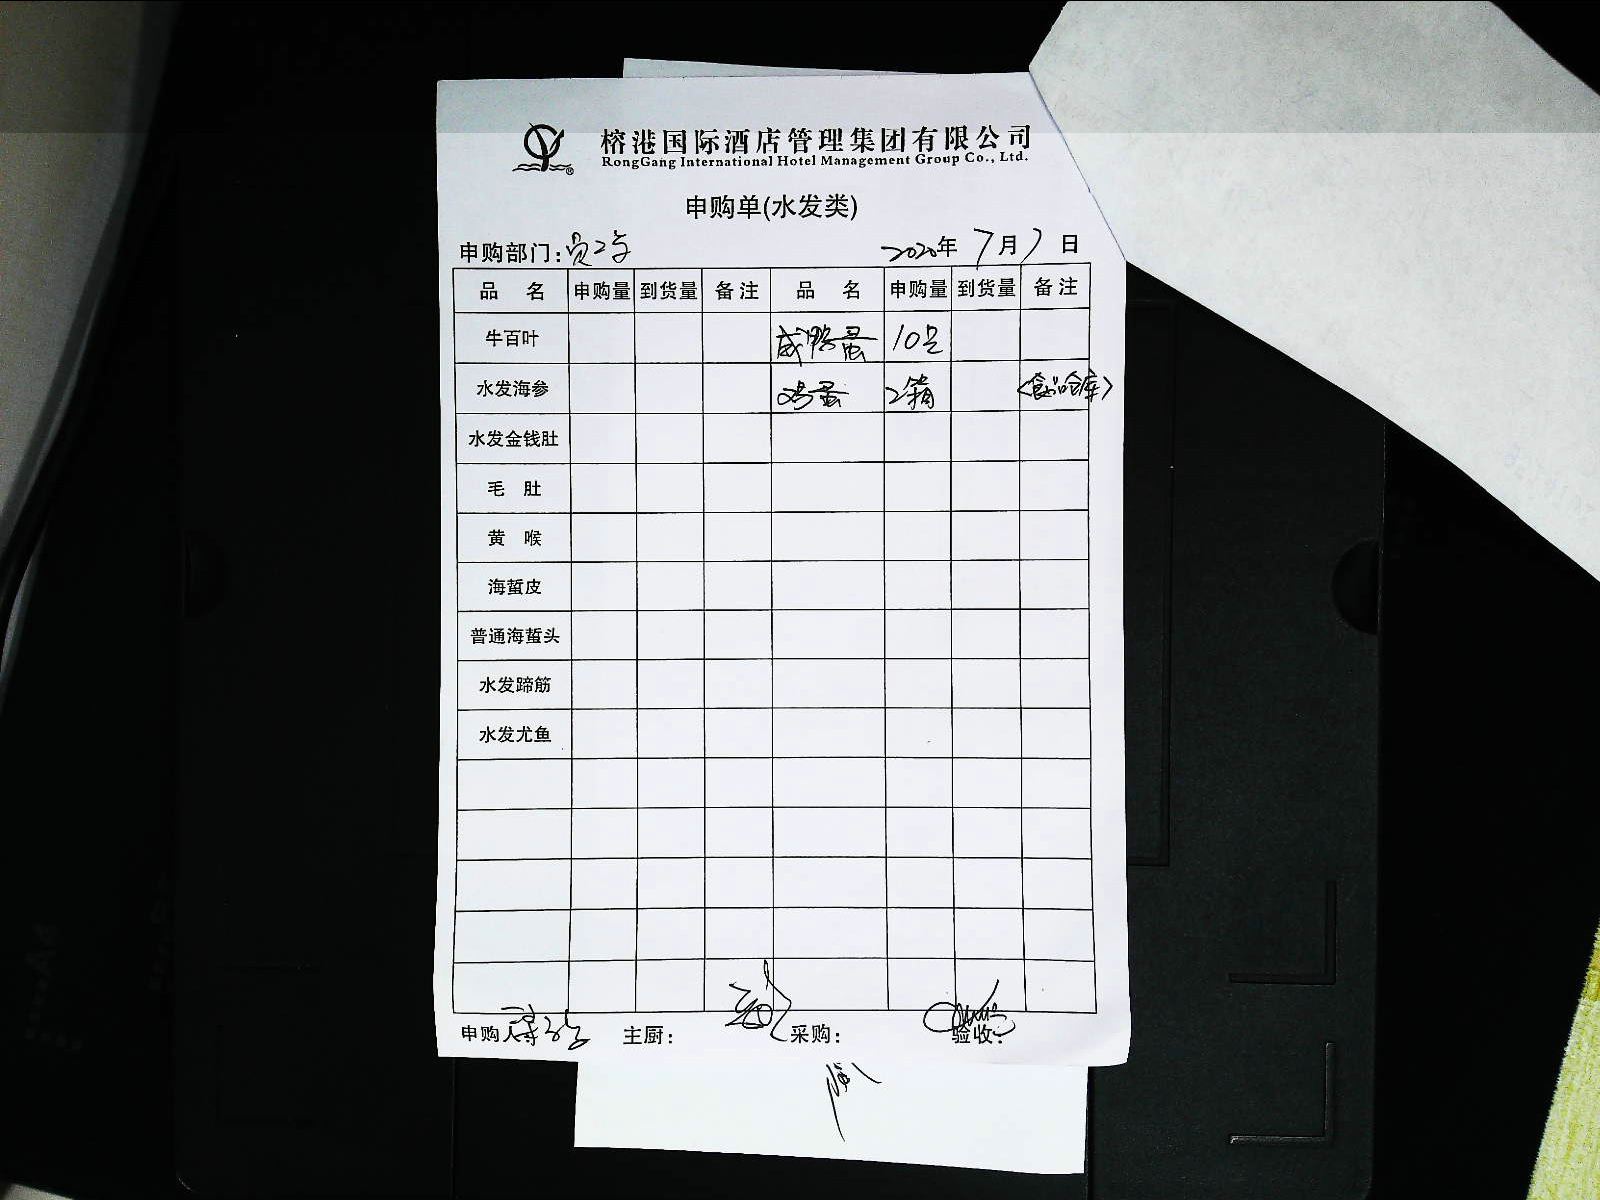 榕港国际酒店管理集团有限公司
RongGang International Hotel Management Group Co., Ltd.
申购单(水发类)
申购部门: 2020年 7月 7日
品 名 申购量 到货量 备注 品 名 申购量 到货量 备注
牛百叶 咸鸭蛋 10
水发海参 鸡蛋 2箱
水发金钱肚
毛 肚
黄 喉
海蜇皮
普通海蜇头
水发蹄筋
水发尤鱼
申购人 主厨: 采购: 验收: